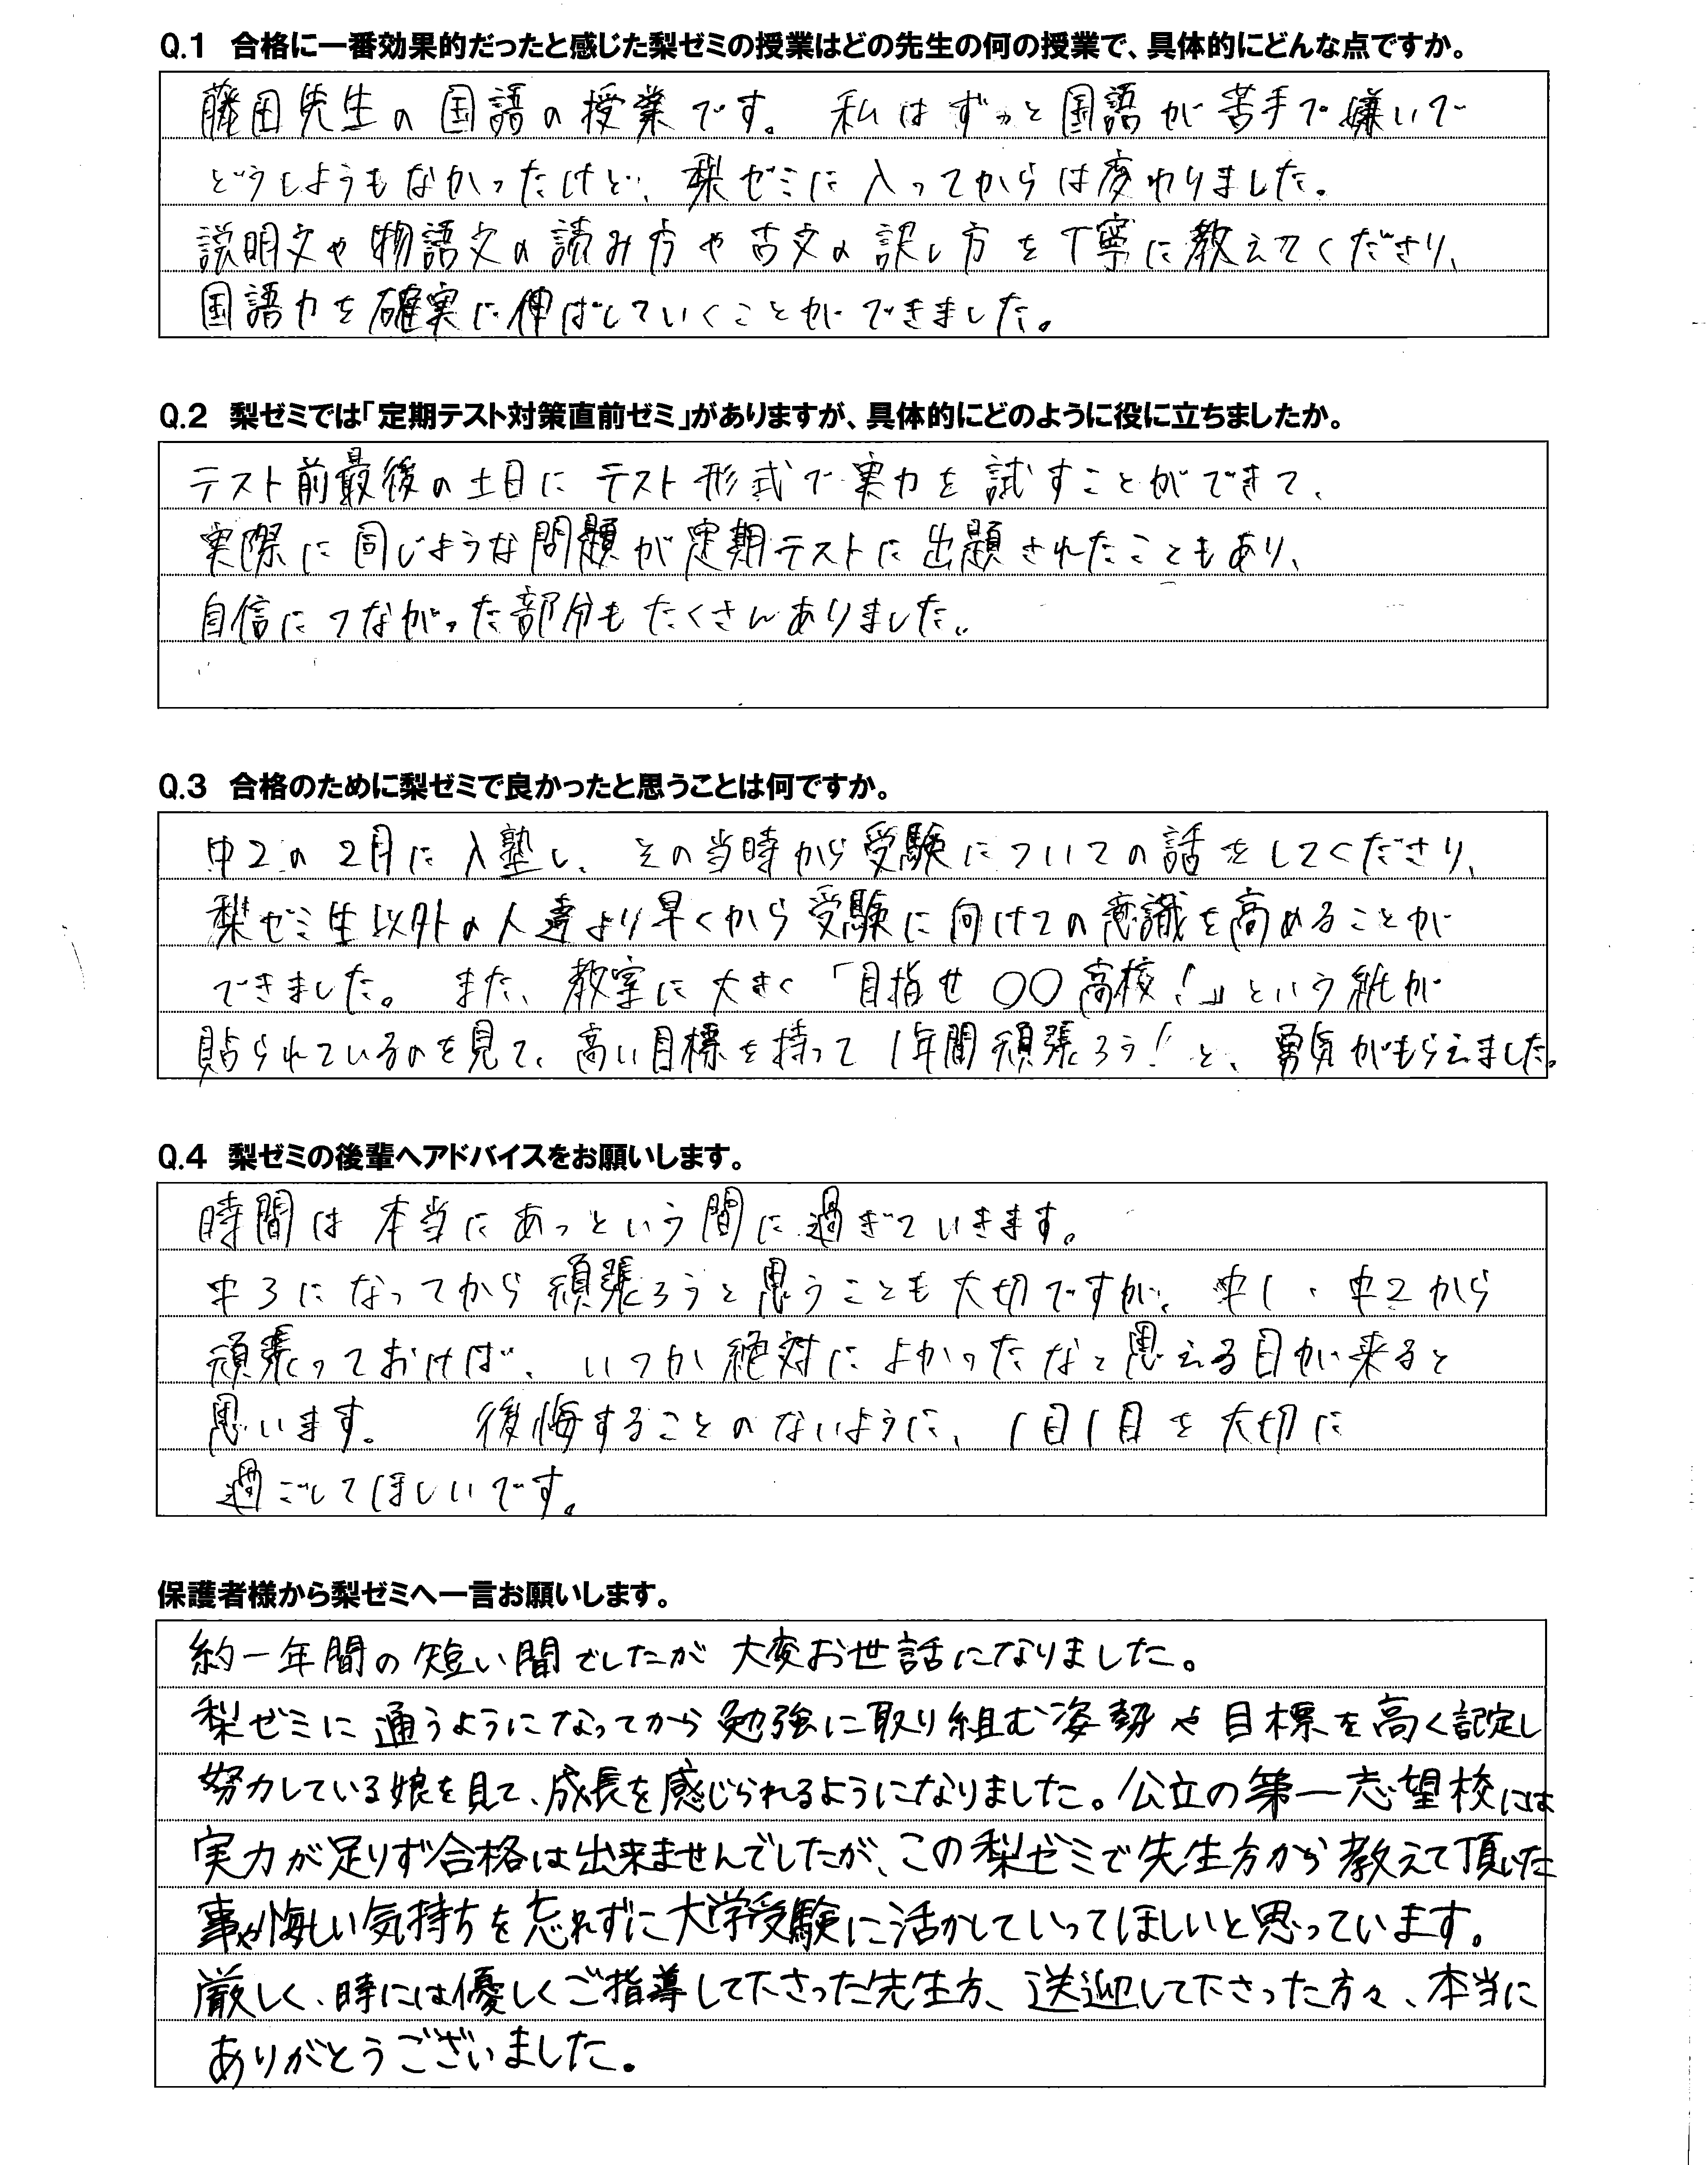 Q.1 合格に一番効果的だったと感じた梨ゼミの授業はどの先生の何の授業で、具体的にどんな点ですか。
藤田先生の国語の授業です。私はずっと国語が苦手で嫌いで
どうしようもなかったけど、梨ゼミに入ってからは変わりました。
説明文や物語文の読み方や古文の訳し方を丁寧に教えてくださり、
国語力を確実に伸ばしていくことができました。
Q.2 梨ゼミでは「定期テスト対策直前ゼミ」がありますが、具体的にどのように役に立ちましたか。
テスト前最後の土日にテスト形式で実力を試すことができて、
実際に同じような問題が定期テストに出題されたこともあり、
自信につながった部分もたくさんありました。
Q.3 合格のために梨ゼミで良かったと思うことは何ですか。
中2の2月に入塾し、その当時から受験についての話をしてくださり、
梨ゼミ生以外の人達より早くから受験に向けての意識を高めることが
できました。また、教室に大きく「目指せ〇〇高校!」という紙が
貼られているのを見て、高い目標を持って1年間頑張ろう!と、勇気がもらえました。
Q.4 梨ゼミの後輩へアドバイスをお願いします。
時間は本当にあっという間に過ぎていきます。
中3になってから頑張ろうと思うことも大切ですが、中1、中2から
頑張っておけば、いつか絶対によかったなと思える日が来ると
思います。後悔することのないように、1日1日を大切に
過ごしてほしいです。
保護者様から梨ゼミへ一言お願いします。
約一年間の短い間でしたが大変お世話になりました。
梨ゼミに通うようになってから勉強に取り組む姿勢や目標を高く設定し
努力している娘を見て、成長を感じられるようになりました。公立の第一志望校には
実力が足りず合格は出来ませんでしたが、この梨ゼミで先生方から教えて頂いた
事や悔しい気持ちを忘れずに大学受験に活かしていってほしいと思っています。
厳しく、時には優しくご指導して下さった先生方、送迎して下さった方々、本当に
ありがとうございました。